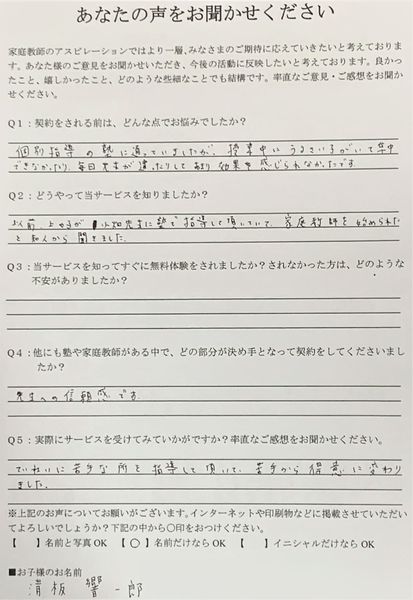 あなたの声をお聞かせください
家庭教師のアスピレーションではより一層、みなさまのご期待に応えていきたいと考えておりま
す。あなた様のご意見をお聞かせいただき、今後の活動に反映したいと考えております。良かっ
たこと、嬉しかったこと、どのような些細なことでも結構です。率直なご意見・ご感想をお聞か
せください。
Q1：契約をされる前は、どんな点でお悩みでしたか？
個別指導の塾に通っていましたが、授業中にうるさい子がいて集中
できなかったり、毎回先生が違ったりしてあまり効果を感じられなかったです
Q2：どうやって当サービスを知りましたか？
以前、上の子が小知先生に塾で指導して頂いていて、家庭教師を始められた
と知人から聞きました。
Q3：当サービスを知ってすぐに無料体験をされましたか？されなかった方は、どのような
不安がありましたか？
Q4：他にも塾や家庭教師がある中で、どの部分が決め手となって契約をしてくださいまし
たか？
先生への信頼感です。
Q5：実際にサービスを受けてみていかがですか？率直なご感想をお聞かせください。
ていねいに苦手な所を指導して頂いて、苦手から得意に変わり
ました。
※上記のお声についてお願いがございます。インターネットや印刷物などに掲載させていただい
てよろしいでしょうか？下記の中から〇印をおつけください。
【　】名前と写真OK 【〇】名前だけならOK 【　】イニシャルだけならOK
■お子様のお名前
清板 響一郎